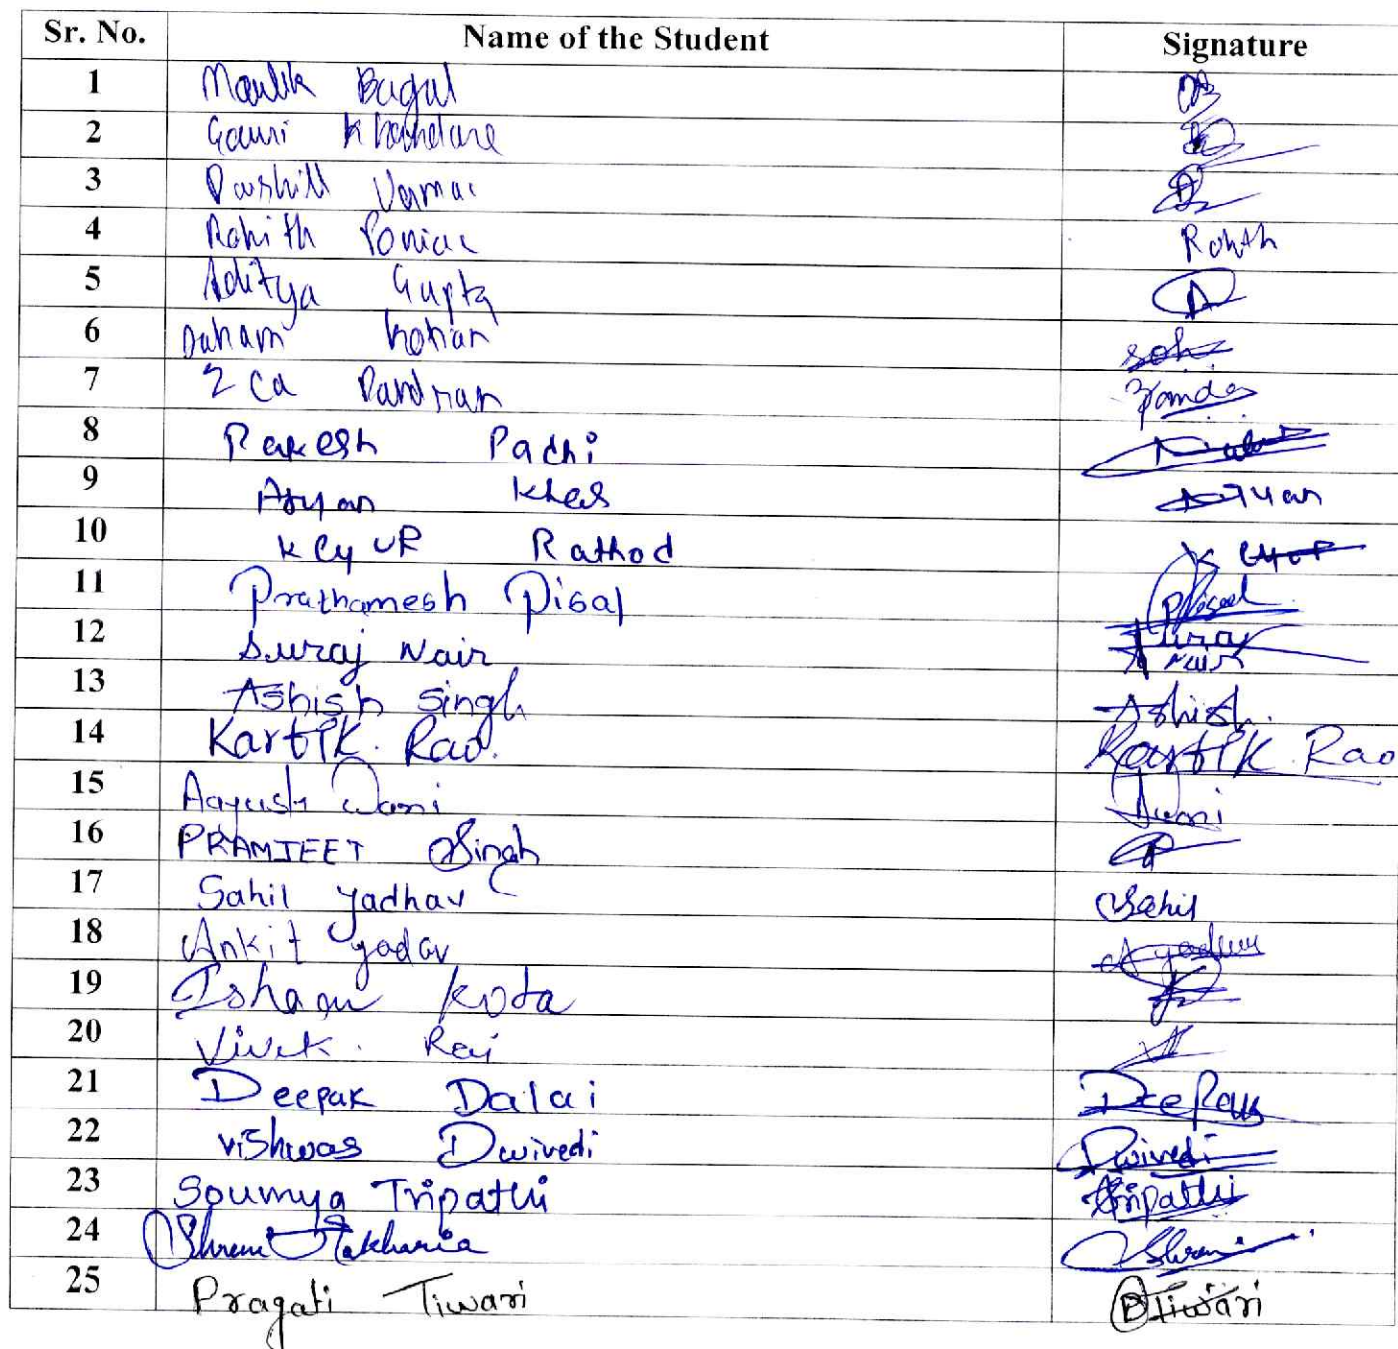 Sr. No. Name of the Student Signature
1 Maulik Bagul
2 Gauri Khandare
3 Varma
4 Rohith Rohith
5 Aditya Gupta A
6 Kotian
7
8 Rakesh Padhi
9 Aryan Aryan
10 Keyur Rathod
11 Prathamesh Disal
12 Suraj Nair Suraj Nair
13 Ashish Singh Ashish.
14 Kartik. Rao. Kartik. Rao
15 Aayush Wani Awani
16 PRAMJEET Singh
17 Sahil Yadhav Sahil
18 Ankit yadav
19 Kota
20 Vivek. Rai
21 Deepak Dalai Deepak
22 Vishwas Dwivedi Dwivedi
23 Soumya Tripathi Tripathi
24
25 Pragati Tiwari PTiwari